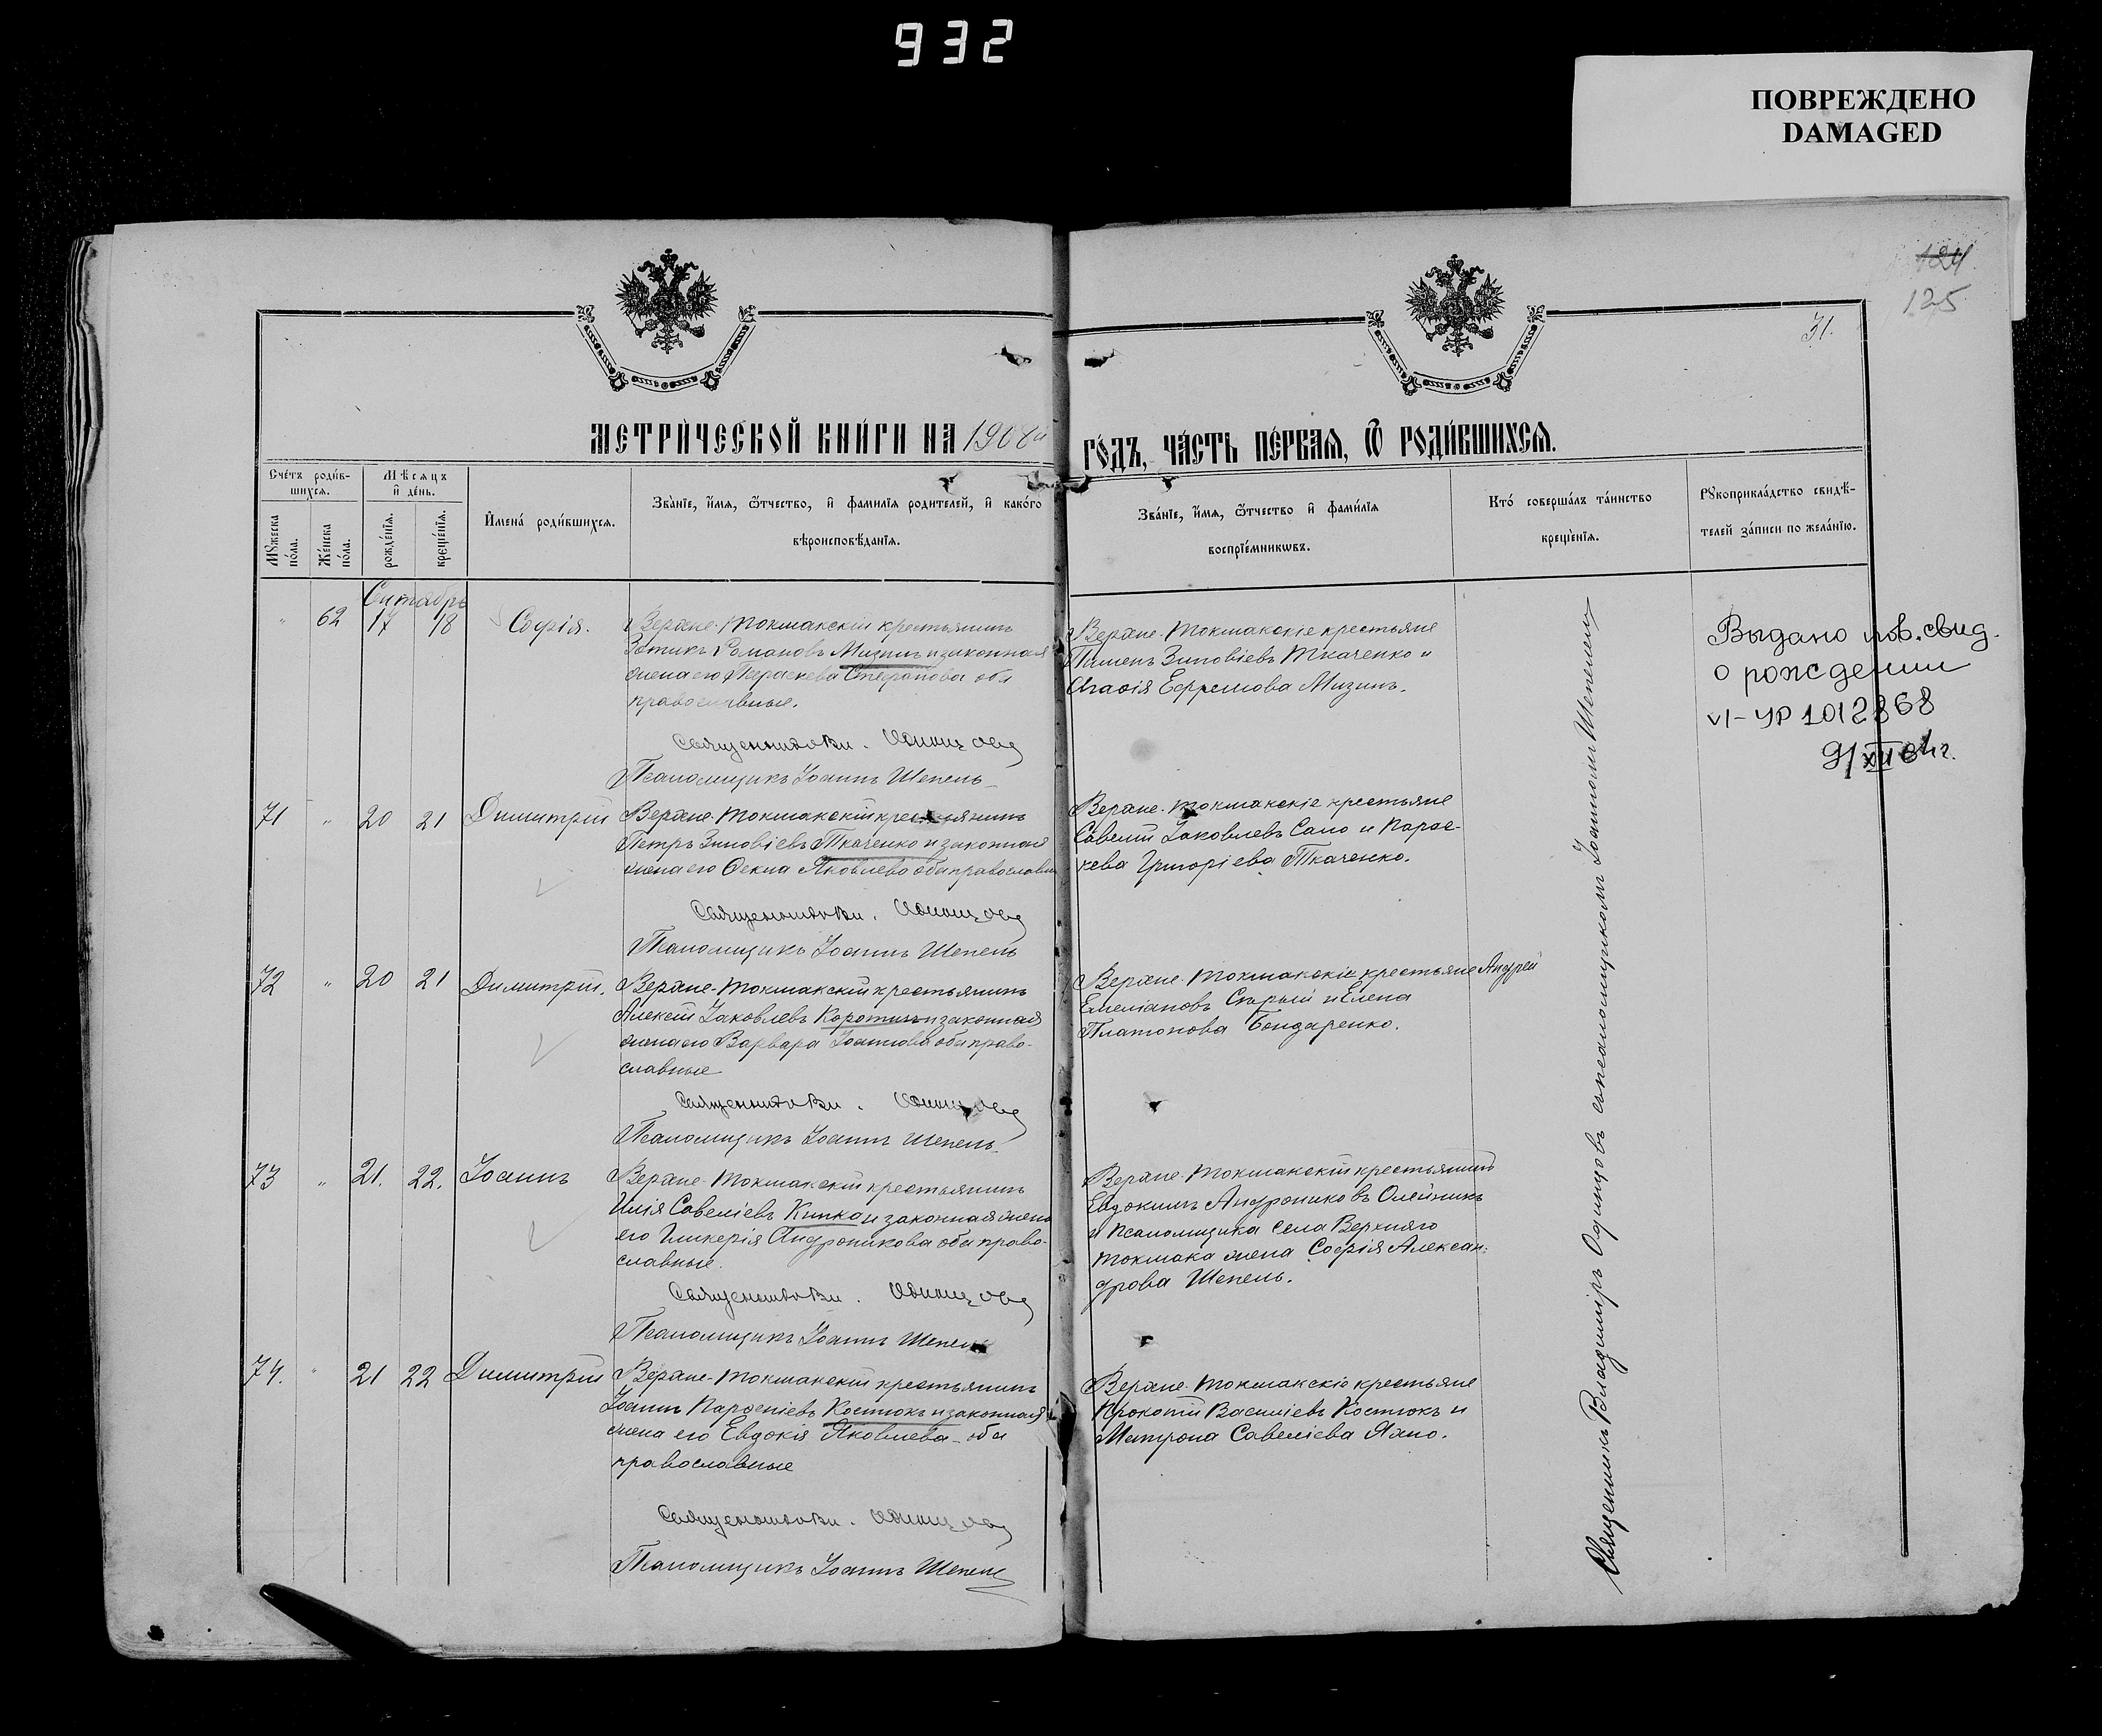 932
ПОВРЕЖДЕНО
DAMAGED
124
125
31.
МЕТРИЧЕСКОЙ КНИГИ НА 1908й
ГОДЪ, ЧАСТЬ ПЕРВАЯ, Ѿ РОДИВШИХСЯ.
Счетъ родив-
шихся.
Мѣсяцъ
и день.
Мужеска
пола.
Женска
пола.
рожденія.
крещенія.
Имена родившихся.
Званіе, имя, ѿтчество, и фамилія родителей, и какого
вѣроисповѣданія.
Званіе, имя, ѿтчество и фамилія
воспріемникѡвъ.
Кто совершалъ таинство
крещенія.
Рукоприкладство свидѣ-
телей записи по желанію.
62 17 18 Софія.
Верхне-Токмакскій крестьянинъ
Зотикъ Романовъ Мизинъ и законная
жена его Параскева Стефанова оба
православные.
Верхне-Токмакскіе крестьяне
Пименъ Зиновіевъ Ткаченко и
Агафія Ефремова Мизинъ.
Выдано пов. свид.
о рождении
VI-УР 1012868
Псаломщикъ Іоаннъ Шепель
71 " 20 21 Димитрій
Верхне-Токмакскій крестьянинъ
Петръ Зиновіевъ Ткаченко и законная
жена его Фекла Яковлева оба православн
Верхне-Токмакскіе крестьяне
Савелій Іаковлевъ Сало и Парас-
кева Григоріева Ткаченко.
Псаломщикъ Іоаннъ Шепель
72 " 20 21 Димитрій.
Верхне-Токмакскій крестьянинъ
Алексій Іаковлевъ и законная
жена его Варвара Іоаннова оба право-
славные
Верхне-Токмакскіе крестьяне Андрей
Емеліановъ Старый и Елена
Платонова Бондаренко.
Псаломщикъ Іоаннъ Шепель
73 " 21. 22. Іоаннъ
Верхне-Токмакскій крестьянинъ
Илія Савеліевъ Кипко и законная жена
его Гликерія Андроникова оба право-
славные.
Верхне-Токмакскій крестьянинъ
Евдокимъ Андрониковъ Олейникъ
и псаломщика села Верхняго
Токмака жена Софія Алексан-
дрова Шепель.
Псаломщикъ Іоаннъ Шепель
74. " 21 22 Димитрій
Верхне-Токмакскій крестьянинъ
Іоаннъ Парфеніевъ Костюкъ и законная
жена его Евдокія Яковлева оба
православные
Верхне-Токмакскіе крестьяне
Прокопій Василіевъ Костюкъ и
Матрона Савеліева Яхно.
Псаломщикъ Іоаннъ Шепель
Священникъ Владиміръ Одинцовъ съ псаломщикомъ Іоанномъ Шепелемъ